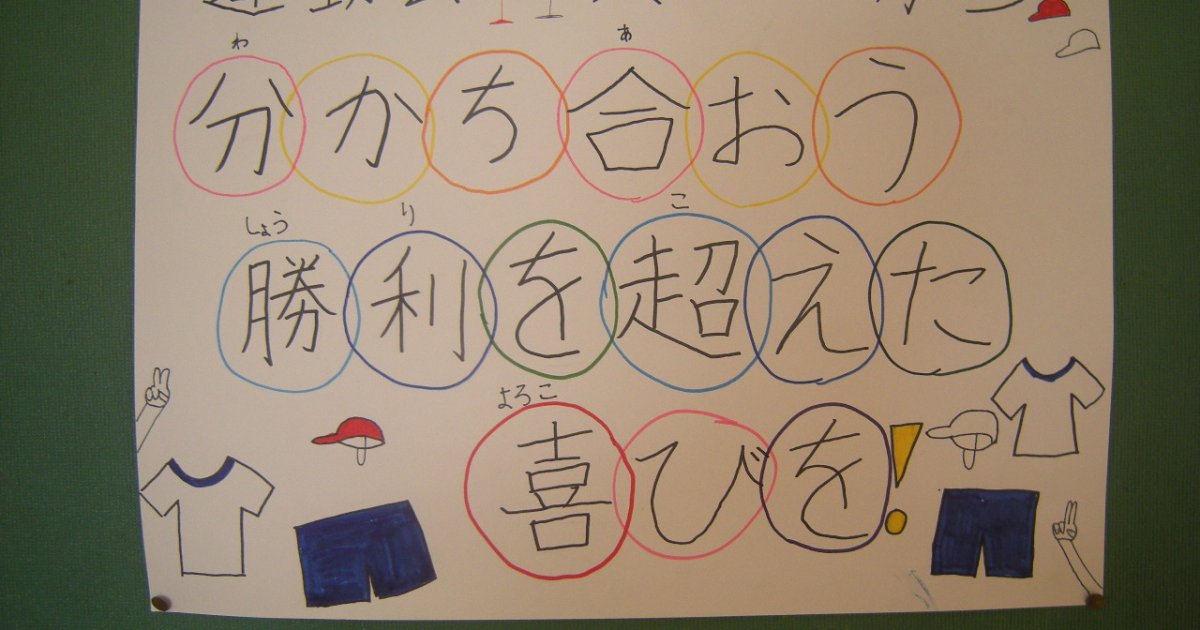 わ あ
分かち合おう
しょう り こ
勝利を超えた
よろこ
喜びを!